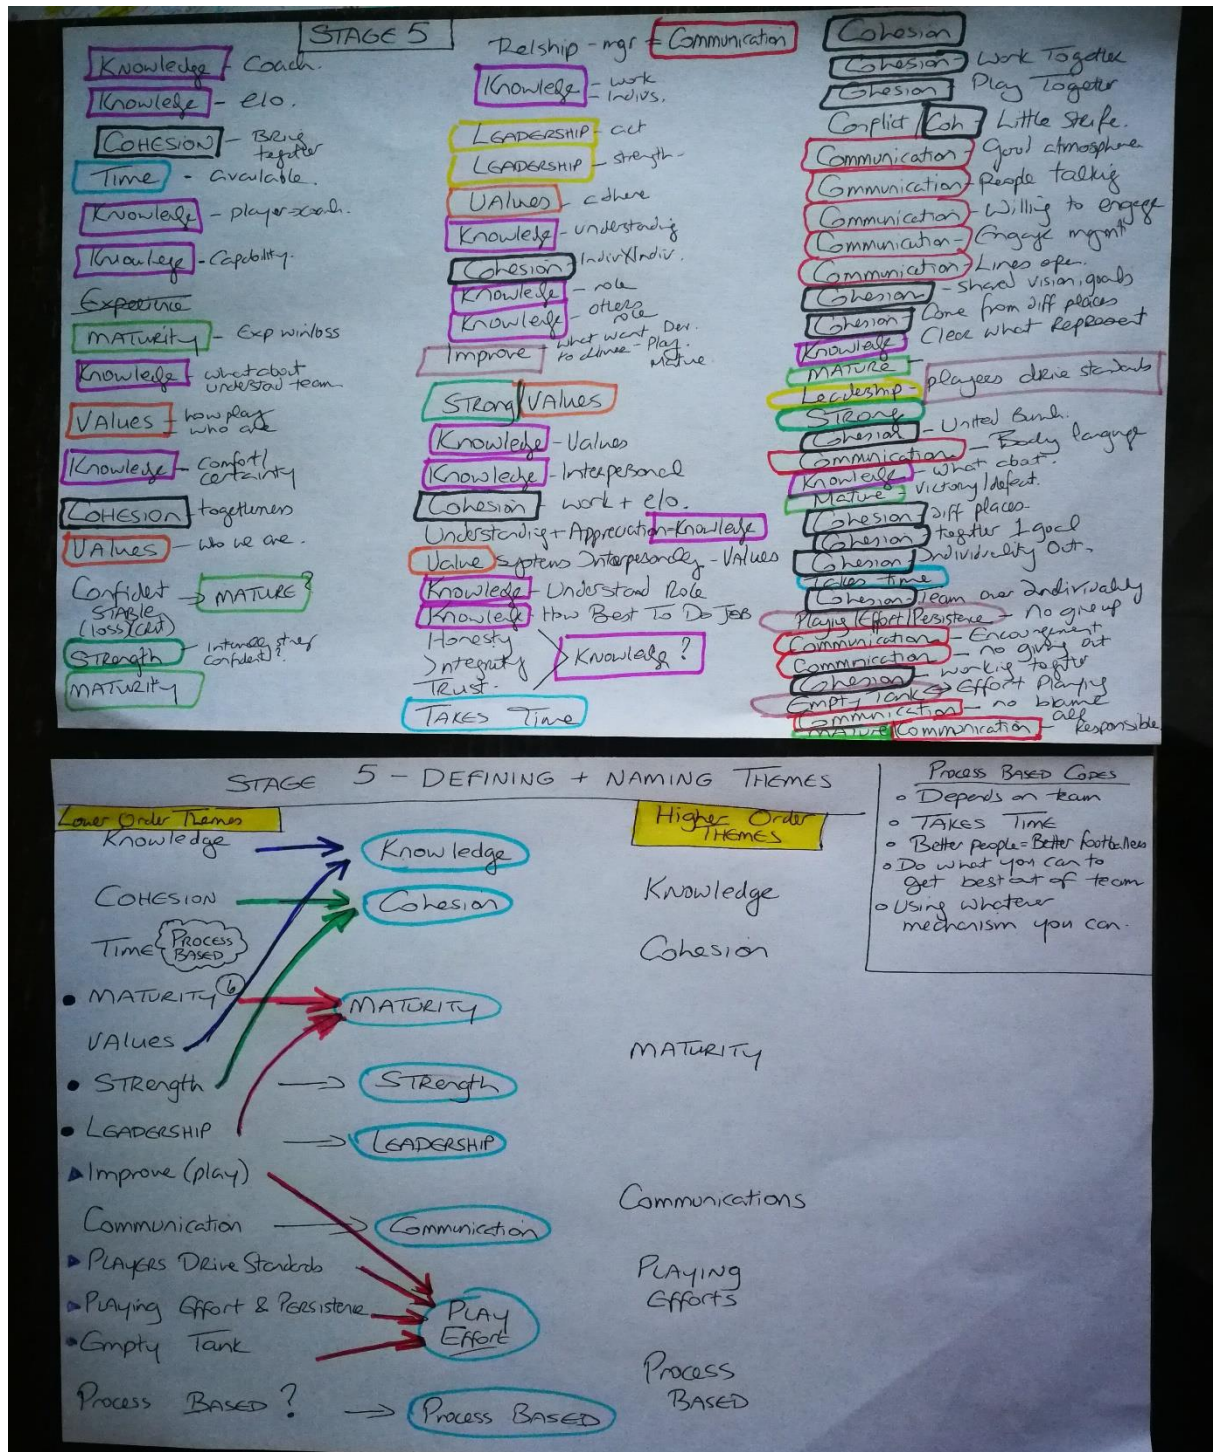 STAGE 5
Knowledge - Coach.
Knowledge - e/o.
COHESION - Bring together
Time - available.
Knowledge - player->coach.
Knowledge - Capability.
Experience
MATURITY - Exp win/loss
Knowledge - what about understand team
VALUES - how play who are
Knowledge - Comfort/certainty
COHESION togetherness
VALUES - who we are.
Confident
STABLE
(loss)(crit)
MATURE?
Strength -
confident?
MATURITY
Relship - mgr = Communication
Knowledge - work
- Indivs.
LEADERSHIP - act
LEADERSHIP - strength -
VALUES - adhere
Knowledge - understanding
Cohesion - Indiv X Indiv.
Knowledge - role
Knowledge - others role
Improve - what want Dev.
to achieve - Play.
Mature
STRong/VALUES
Knowledge - Values
Knowledge - Interpersonal
Cohesion - work + e/o.
Understanding + Appreciation - Knowledge
Value systems Interpersonally - VALUES
Knowledge - Understand Role
Knowledge How Best To Do JOB
Honesty
Integrity
TRUST.
Knowledge?
TAKES Time
Cohesion
Cohesion - Work Together
Cohesion Play Together
Conflict/Coh - Little Strife.
Communication - Good atmosphere
Communication - People talking
Communication - Willing to engage
Communication - Engage mgmt
Communication - Lines open.
Cohesion - shared vision, goals
Cohesion - Come from diff places
Knowledge Clear what Represent
MATURE
Leadership - players drive standards
STRONG
Cohesion - United Bunch.
Communication - Body language
Knowledge - what about.
Mature - victory/defeat.
Cohesion diff places.
Cohesion - together 1 goal
Cohesion - Individuality Out.
Takes time
Cohesion Team over Individuality
Playing/Effort/Persistence - No give up
Communication - Encouragement
Communication - no giving out
Cohesion - working together
Empty Tank <-> Effort Playing
Communication - no blame
MATURE/Communication - all Responsible
STAGE 5 - DEFINING + NAMING THEMES
Lower Order Themes
Knowledge
COHESION
TIME PROCESS BASED
• MATURITY 6
VALUES
• STRength
• LEADERSHIP
Improve (play)
Communication
PLAYERS DRive Standards
PLAying Effort & PERSistence
Empty Tank
Process BASED ?
Knowledge
Cohesion
MATURITY
STRength
LEADERSHIP
Communication
PLAY Effort
Process BASED
Higher Order THEMES
Knowledge
Cohesion
MATURITY
Communications
PLAYING Efforts
Process BASED
Process Based Codes
○ Depends on team
○ TAKES TIME
○ Better people = Better footballers
○ Do what you can to
get best out of team
○ Using whatever
mechanism you can.